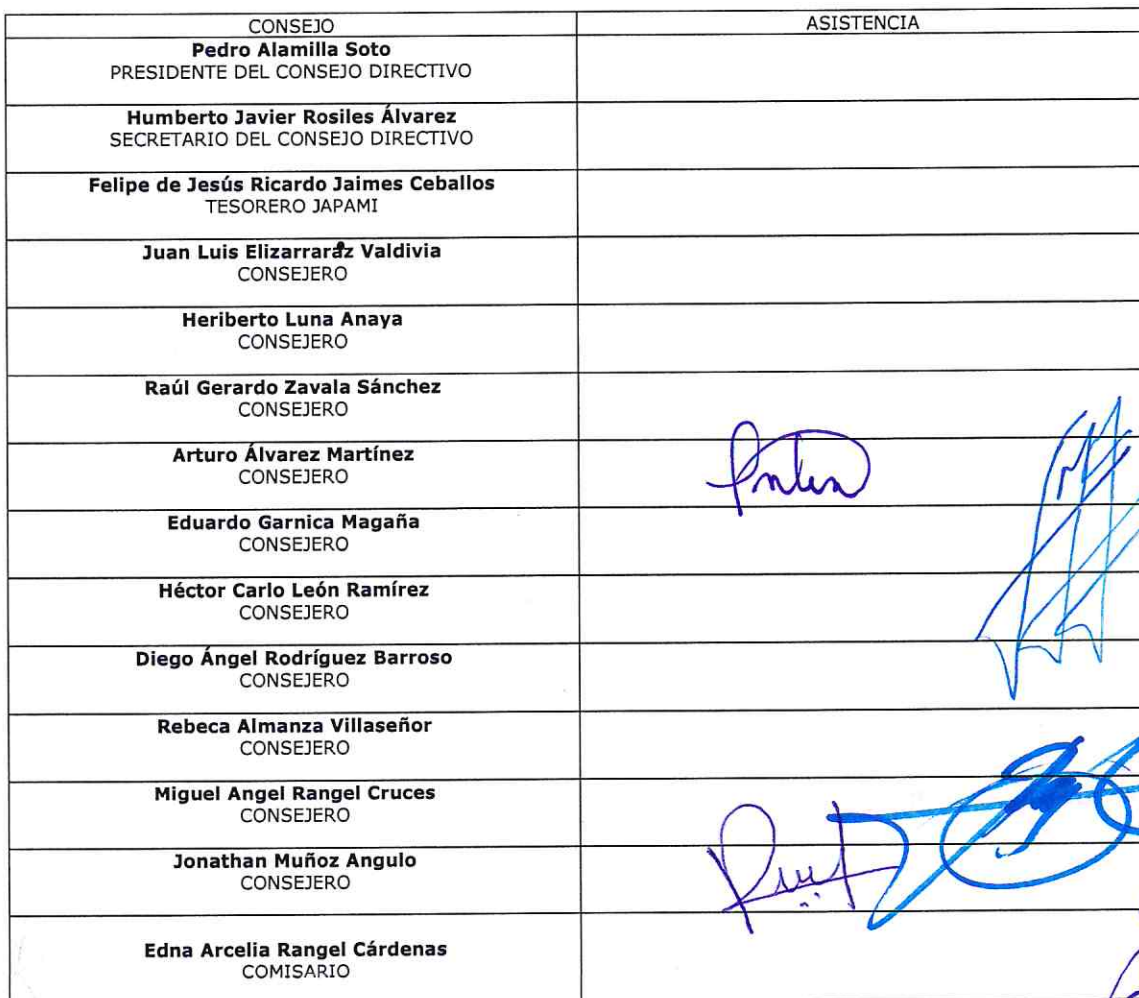 CONSEJO ASISTENCIA
Pedro Alamilla Soto
PRESIDENTE DEL CONSEJO DIRECTIVO
Humberto Javier Rosiles Álvarez
SECRETARIO DEL CONSEJO DIRECTIVO
Felipe de Jesús Ricardo Jaimes Ceballos
TESORERO JAPAMI
Juan Luis Elizarraraz Valdivia
CONSEJERO
Heriberto Luna Anaya
CONSEJERO
Raúl Gerardo Zavala Sánchez
CONSEJERO
Arturo Álvarez Martínez
CONSEJERO
Eduardo Garnica Magaña
CONSEJERO
Héctor Carlo León Ramírez
CONSEJERO
Diego Ángel Rodríguez Barroso
CONSEJERO
Rebeca Almanza Villaseñor
CONSEJERO
Miguel Angel Rangel Cruces
CONSEJERO
Jonathan Muñoz Angulo
CONSEJERO
Edna Arcelia Rangel Cárdenas
COMISARIO